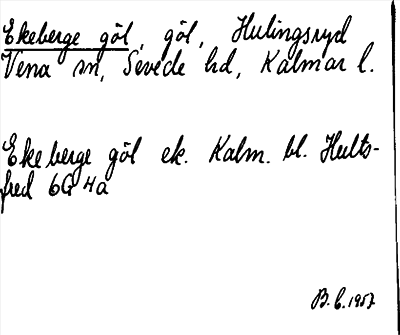 Ekeberge göl, göl, Hulingsryd
Vena sn, Sevede hd, Kalmar l.
Ekeberge göl ek. Kalm. bl. Hults-
fred 6G 4a
B.C. 1957